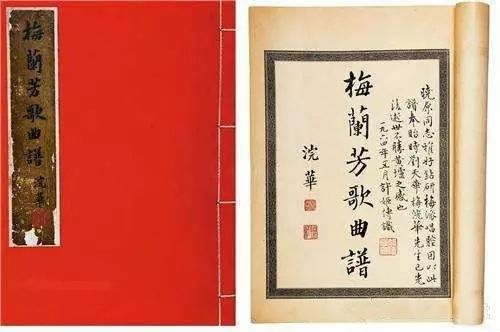 梅蘭芳歌曲譜
浣華
曉原同志雅好鑽研梅派唱腔因以此
譜奉貽時劉天華梅浣華先生已先
後逝世不勝黃壚之感也
一九六四年五月許姬傳識
梅蘭芳歌曲譜
浣華